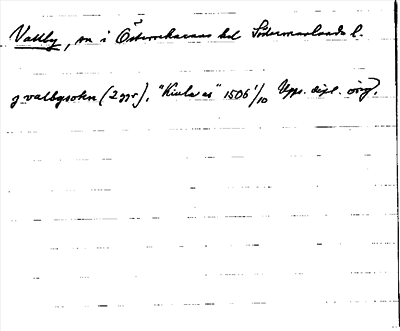 Vallby, sn i Österrekarne hd Södermanlands l.
j valbysokn (2 ggr), "Kiula as" 1506 1/10 Upps. dipl. orig.